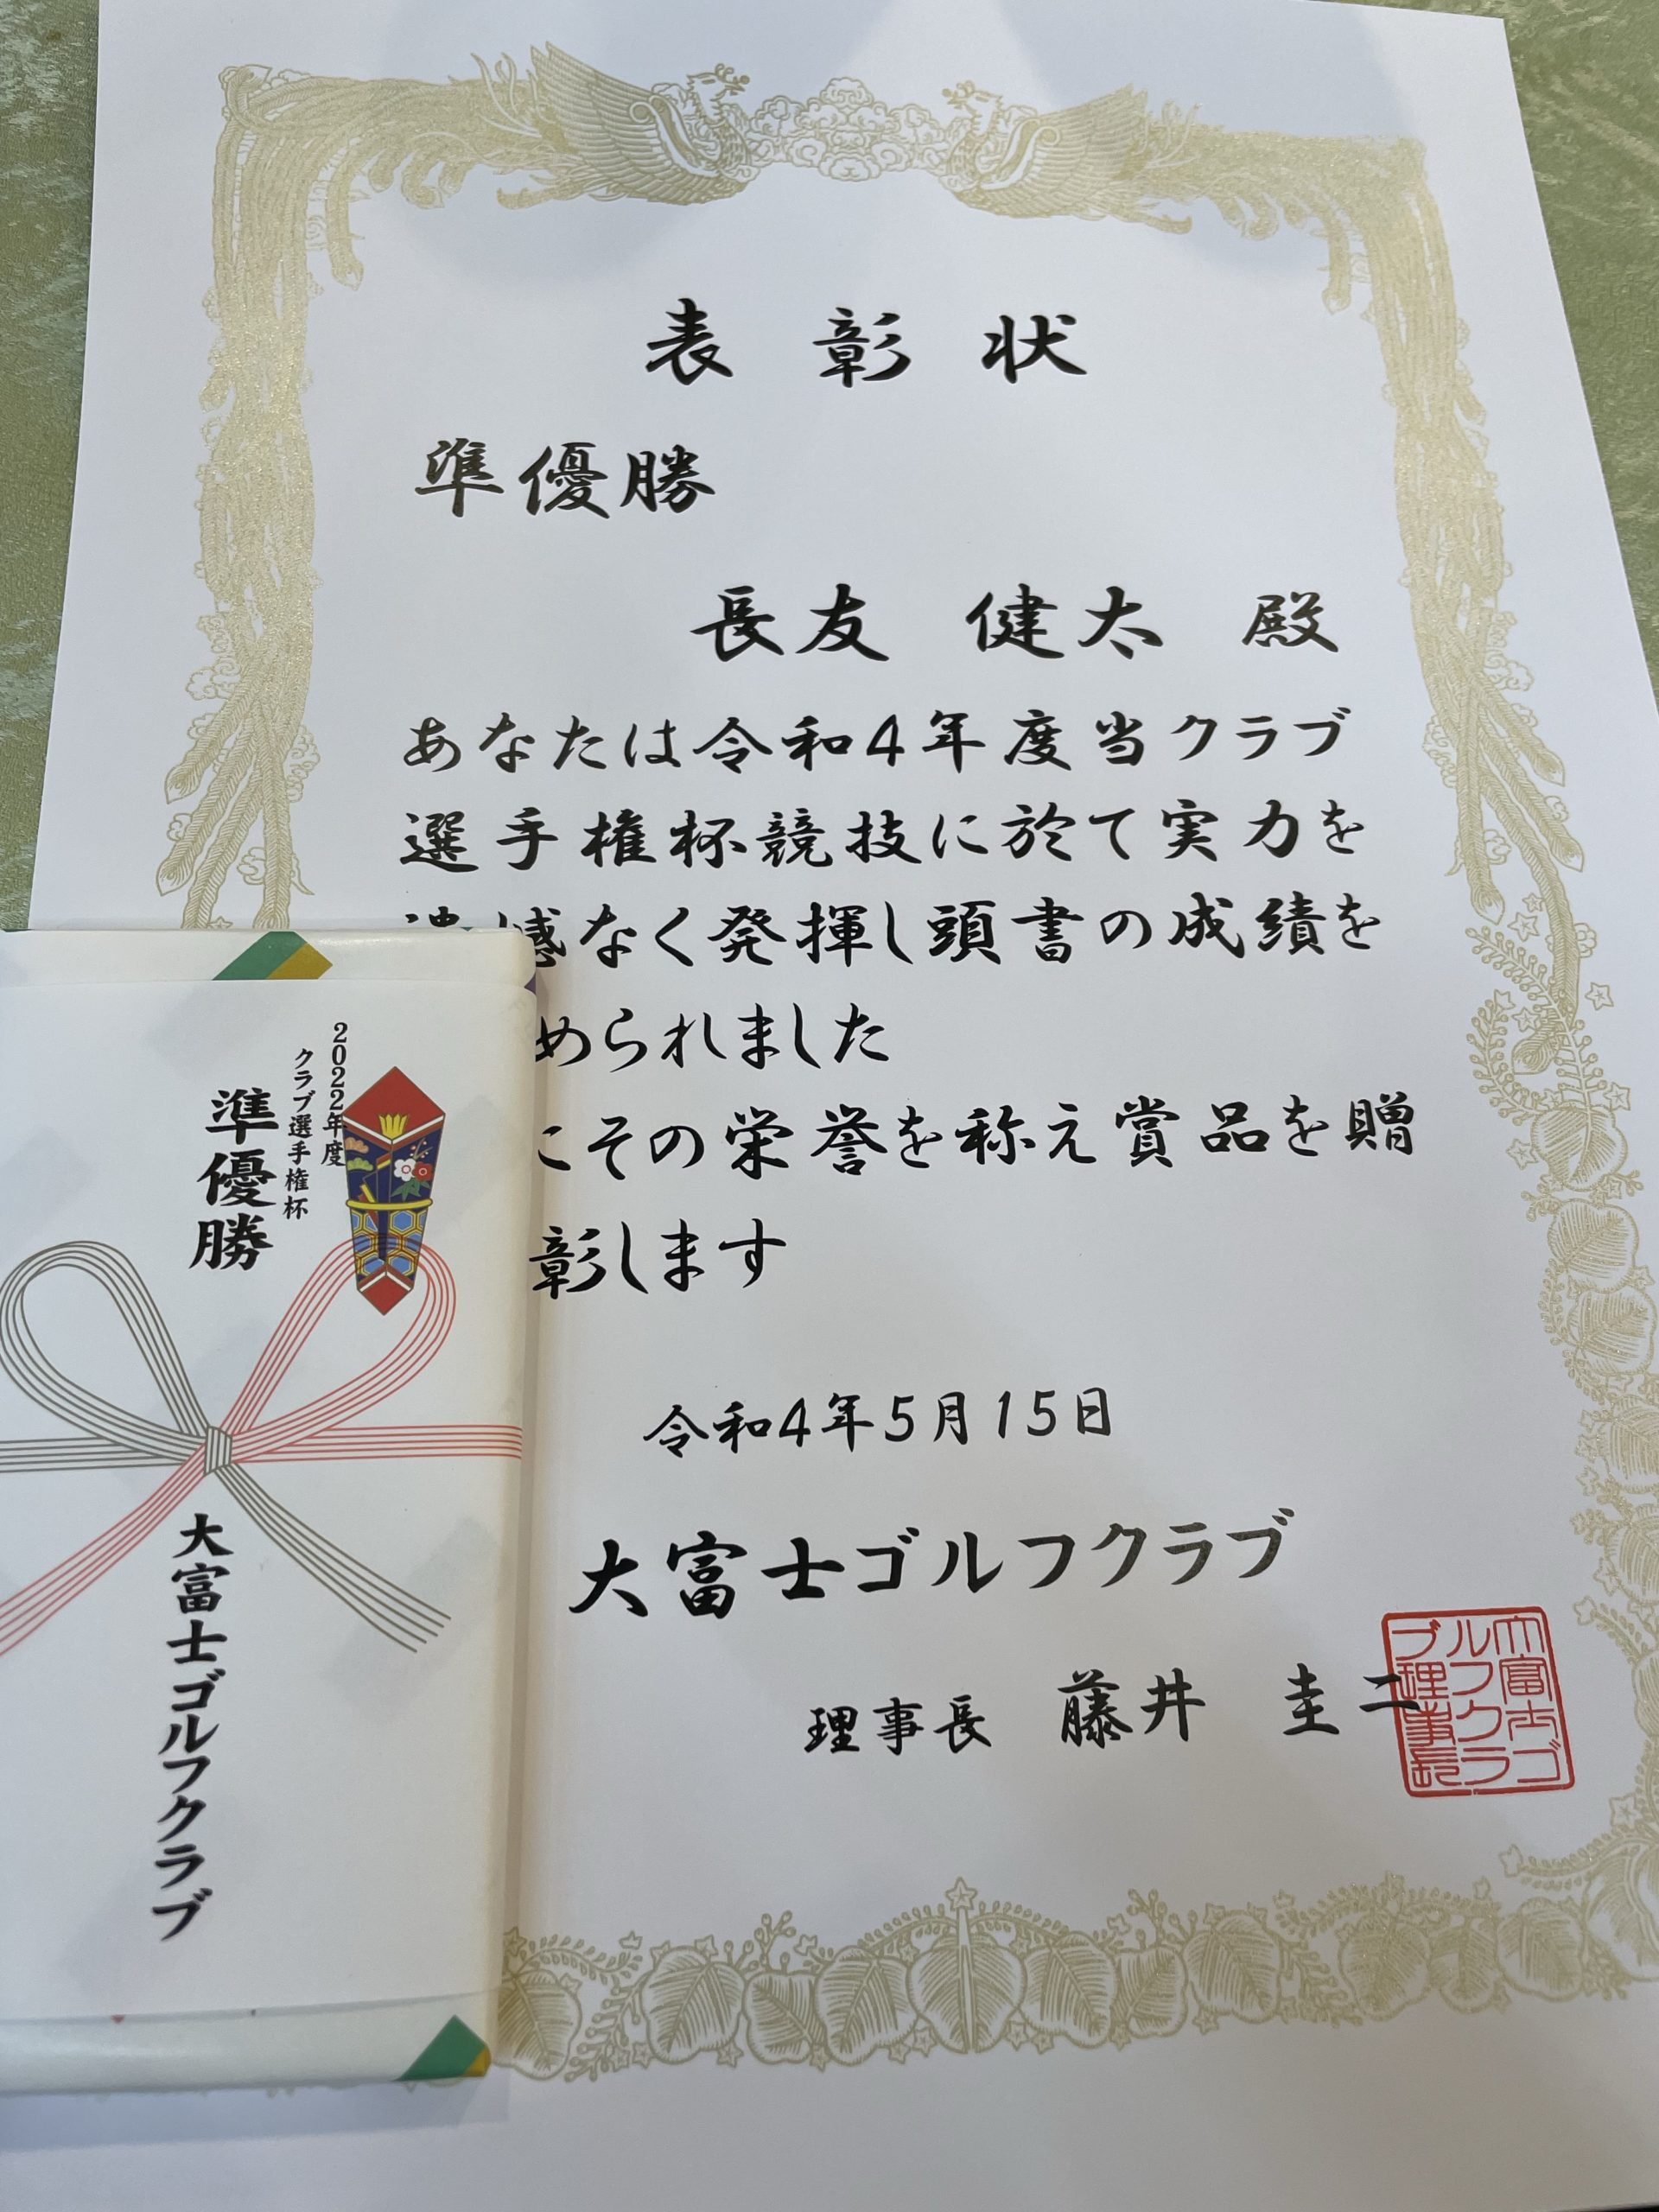 表彰状
準優勝
長友 健太 殿
あなたは令和4年度当クラブ
選手権杯競技に於て実力を
憾なく発揮し頭書の成績を
められました
こその栄誉を称え賞品を贈
彰します
令和4年5月15日
大富士ゴルフクラブ
理事長 藤井 圭二
大富士ゴ
ルフクラ
ブ理事長
2022年度
クラブ選手権杯
準優勝
大富士ゴルフクラブ